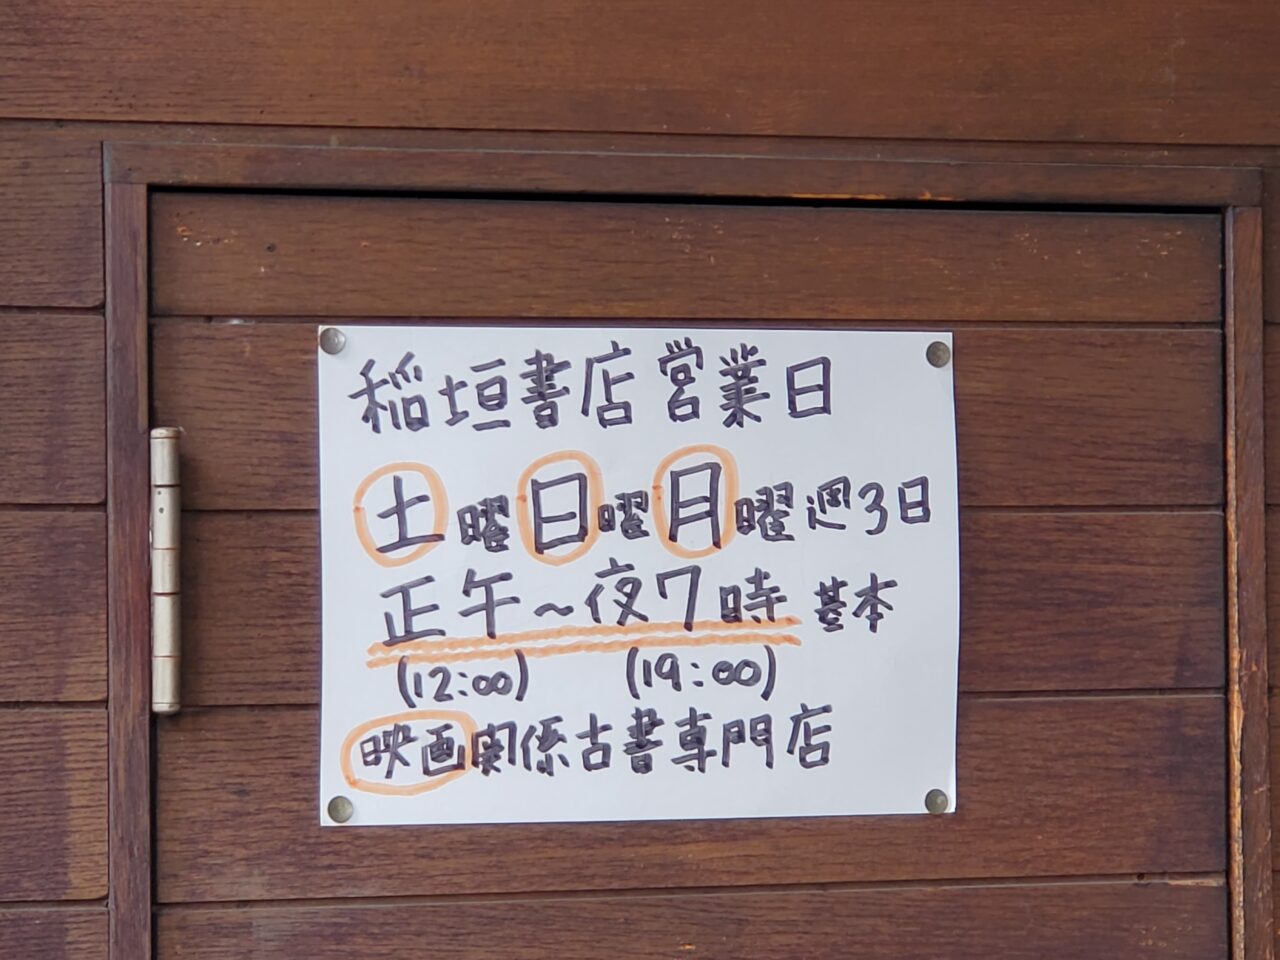 稲垣書店営業日
土曜日曜月曜週3日
正午～夜7時 基本
(12:00) (19:00)
映画関係古書専門店